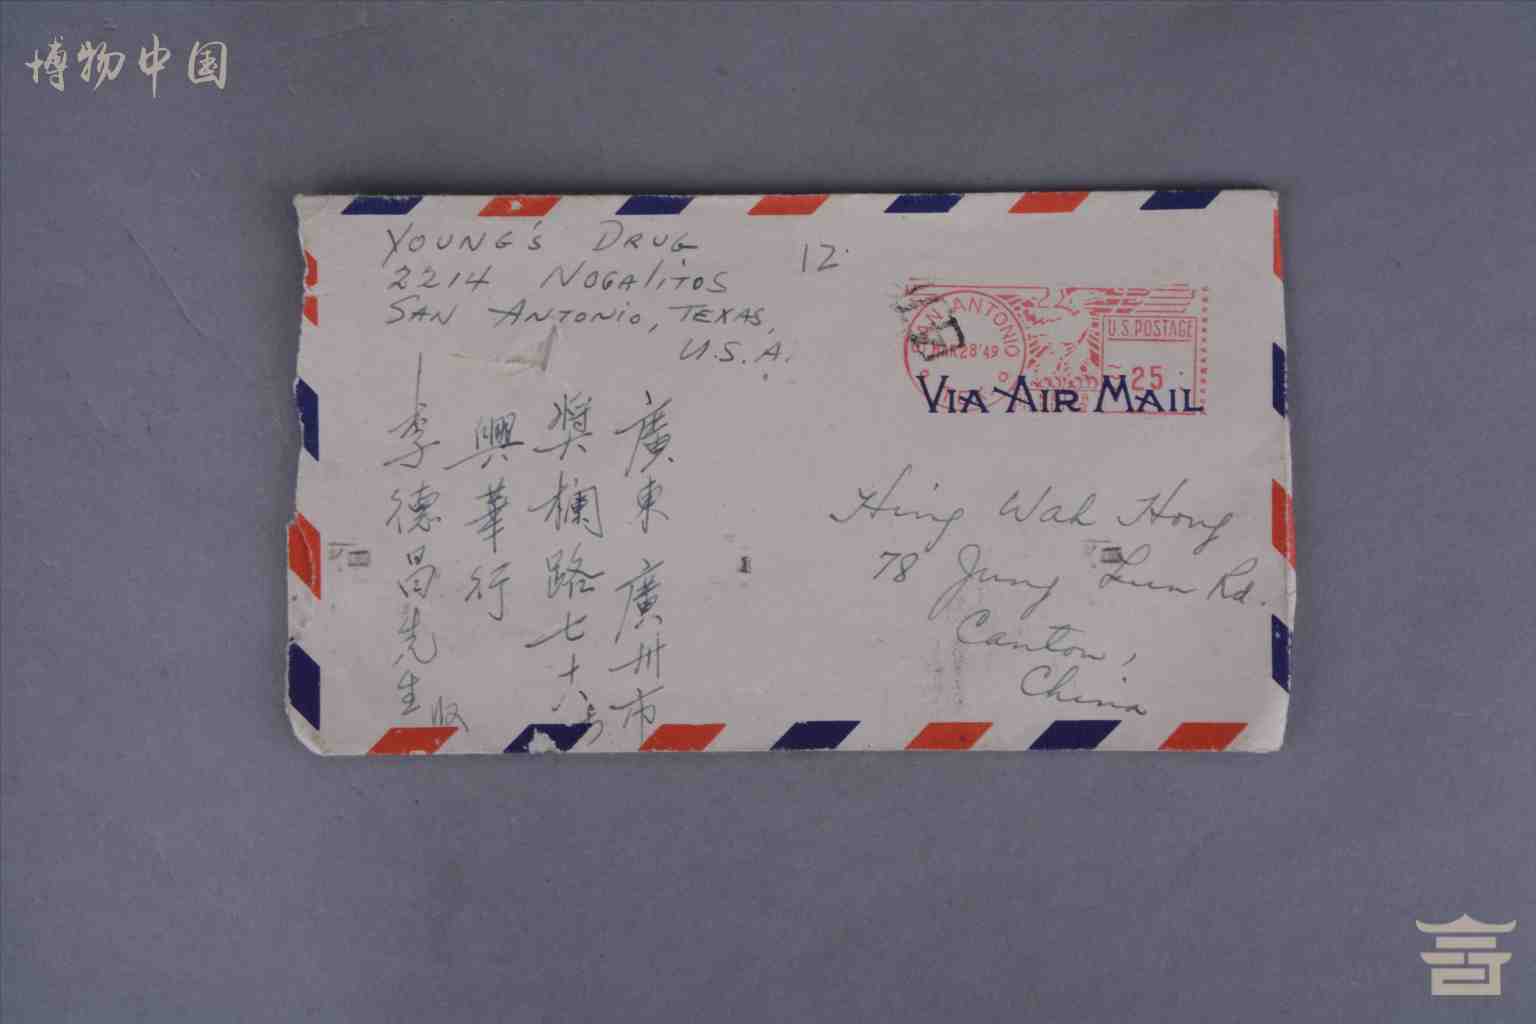 博物中国
YOUNG'S DRUG
2214 NOGALITOS
SAN ANTONIO, TEXAS,
U.S.A.
12
SAN ANTONIO
MAR 28 '49
U.S. POSTAGE
25
VIA AIR MAIL
Hing Wah Hong
78 Jung Lun Rd.
Canton,
China
廣東廣州市
槳欄路七十八号
興華行
李德昌先生收